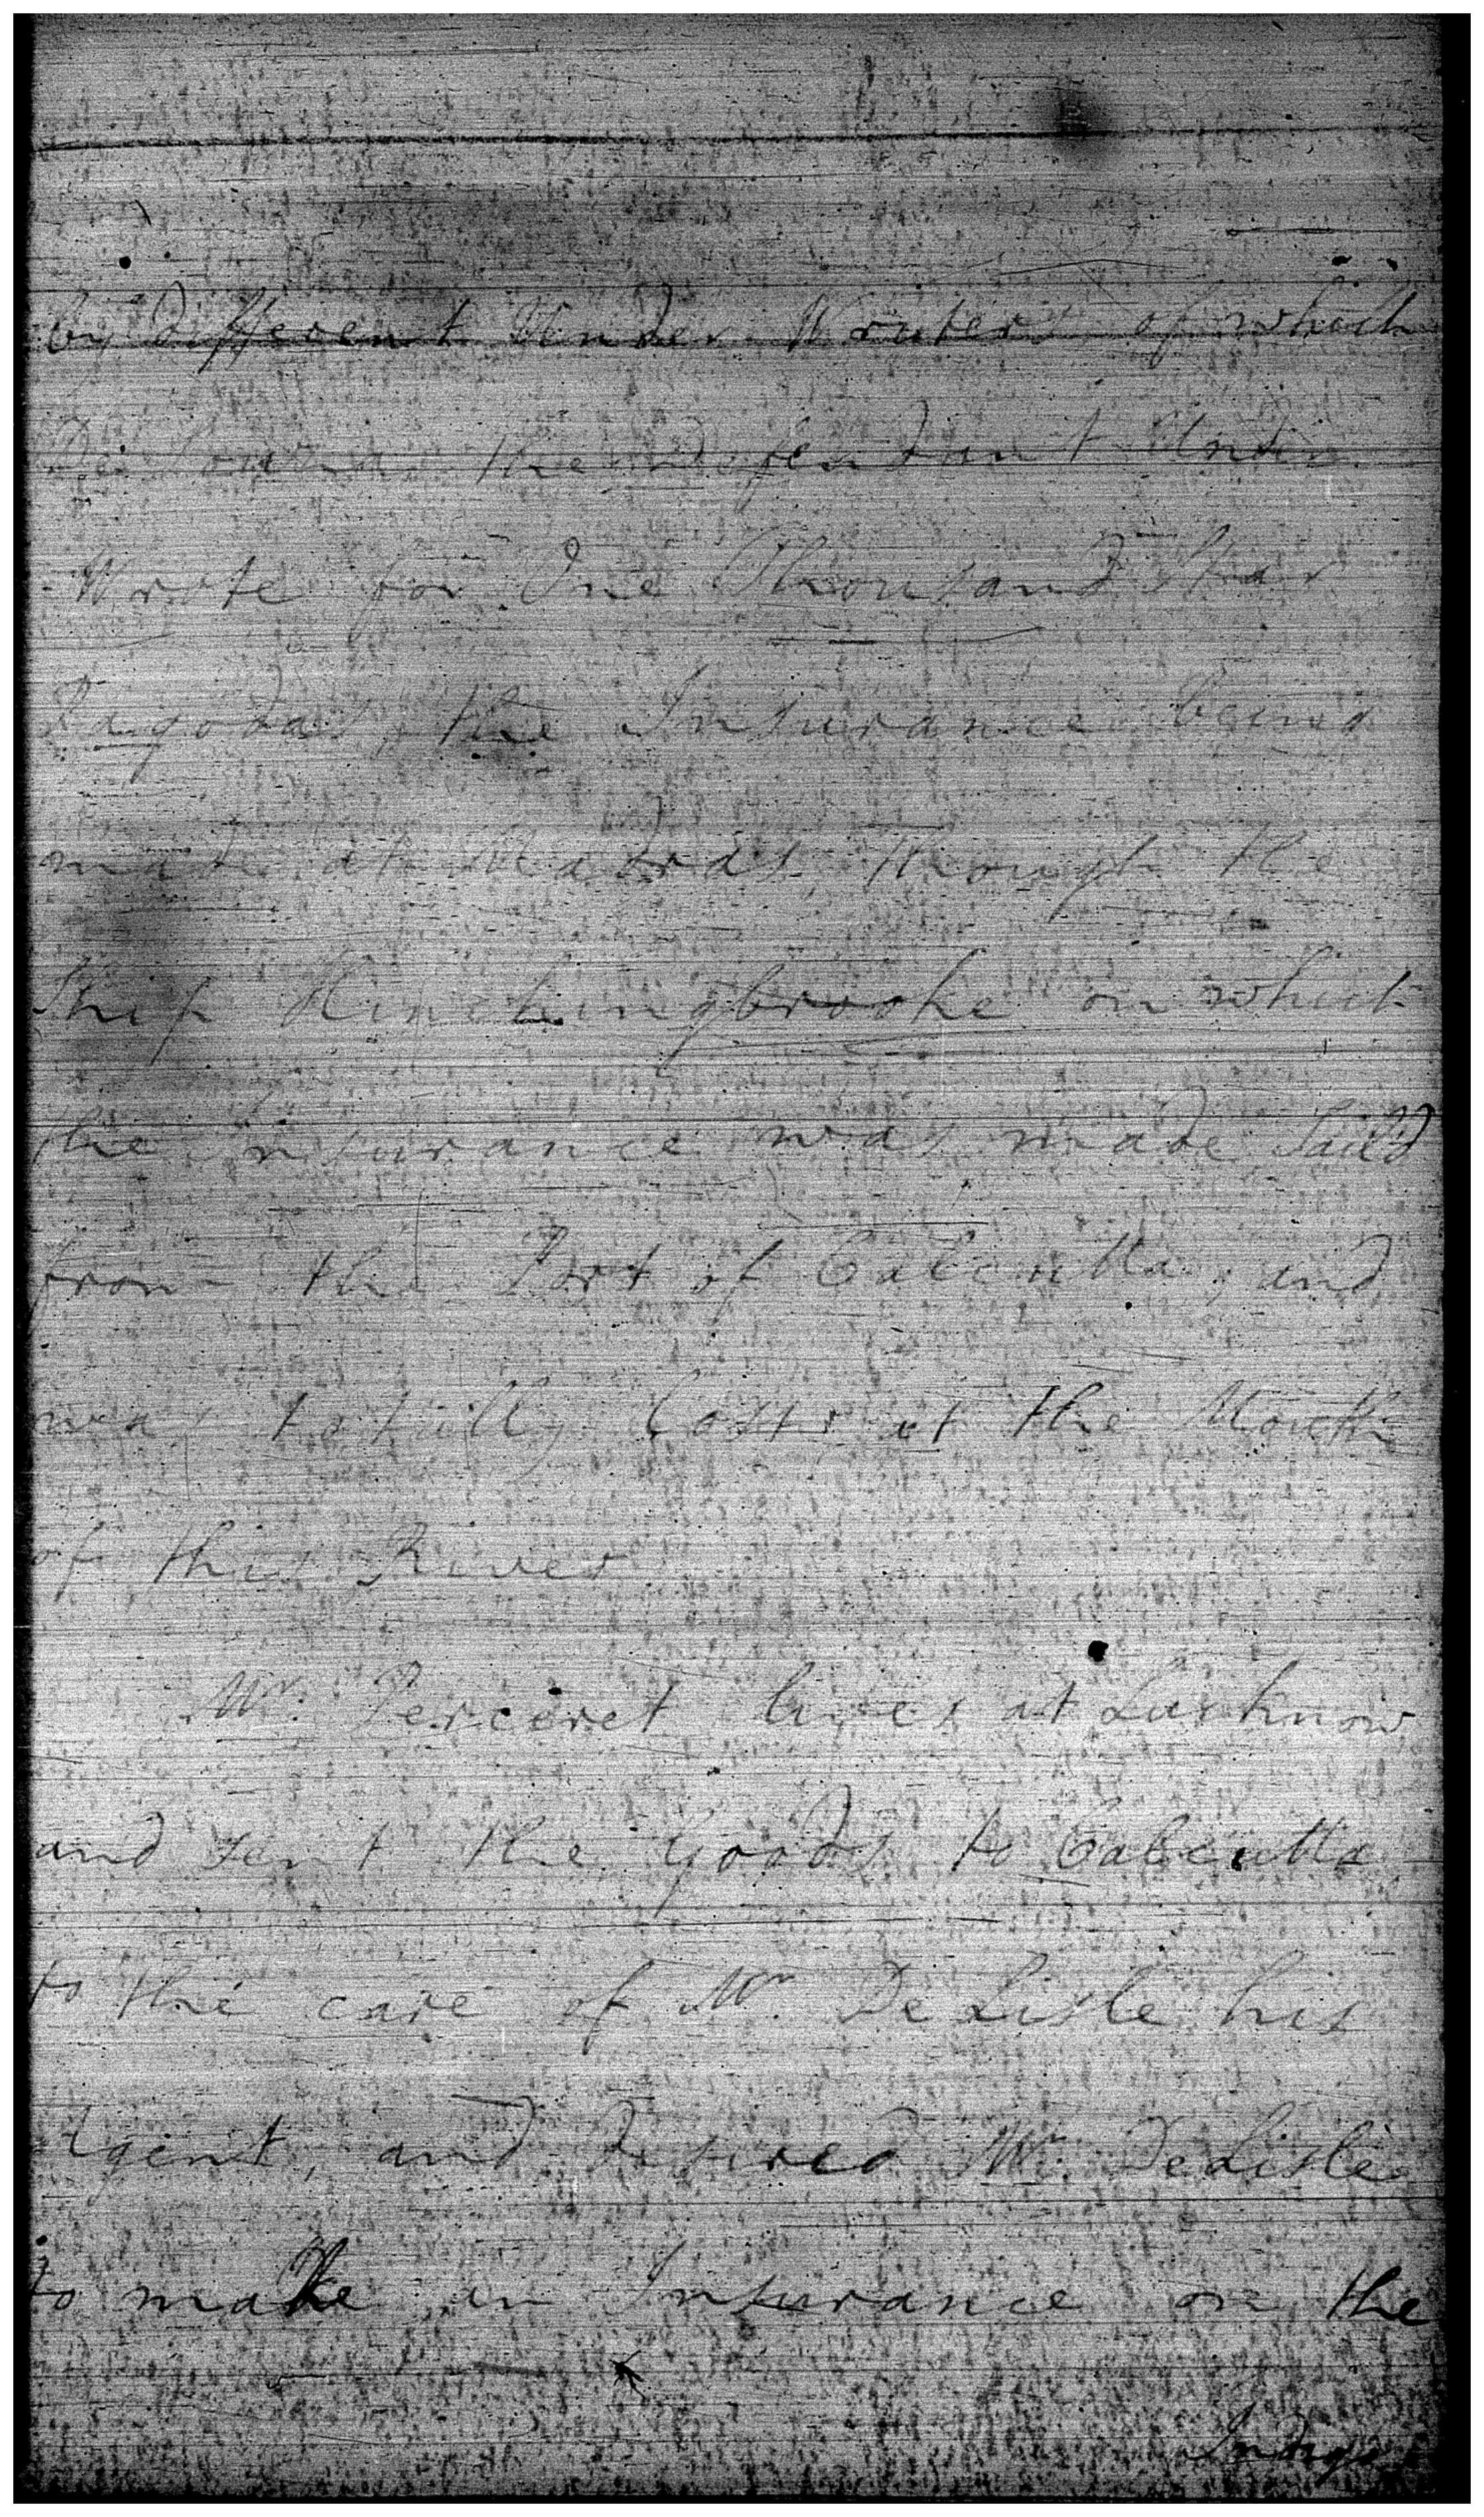 by different Under Writers of which
the defendant Under
Wrote for One Thousand Star
Pagodas, the Insurance being
made at Madras, though the
Ship Hinchingbrooke on which
the Insurance was made Sail'd
from the Port of Calcutta, and
was totally lost at the Mouth
of this River
Mr. Perceret lives at Lucknow
and sent the Goods to Calcutta
to the care of Mr. DeLisle his
Agent, and desired Mr. DeLisle
to make an Insurance on the
Indigo